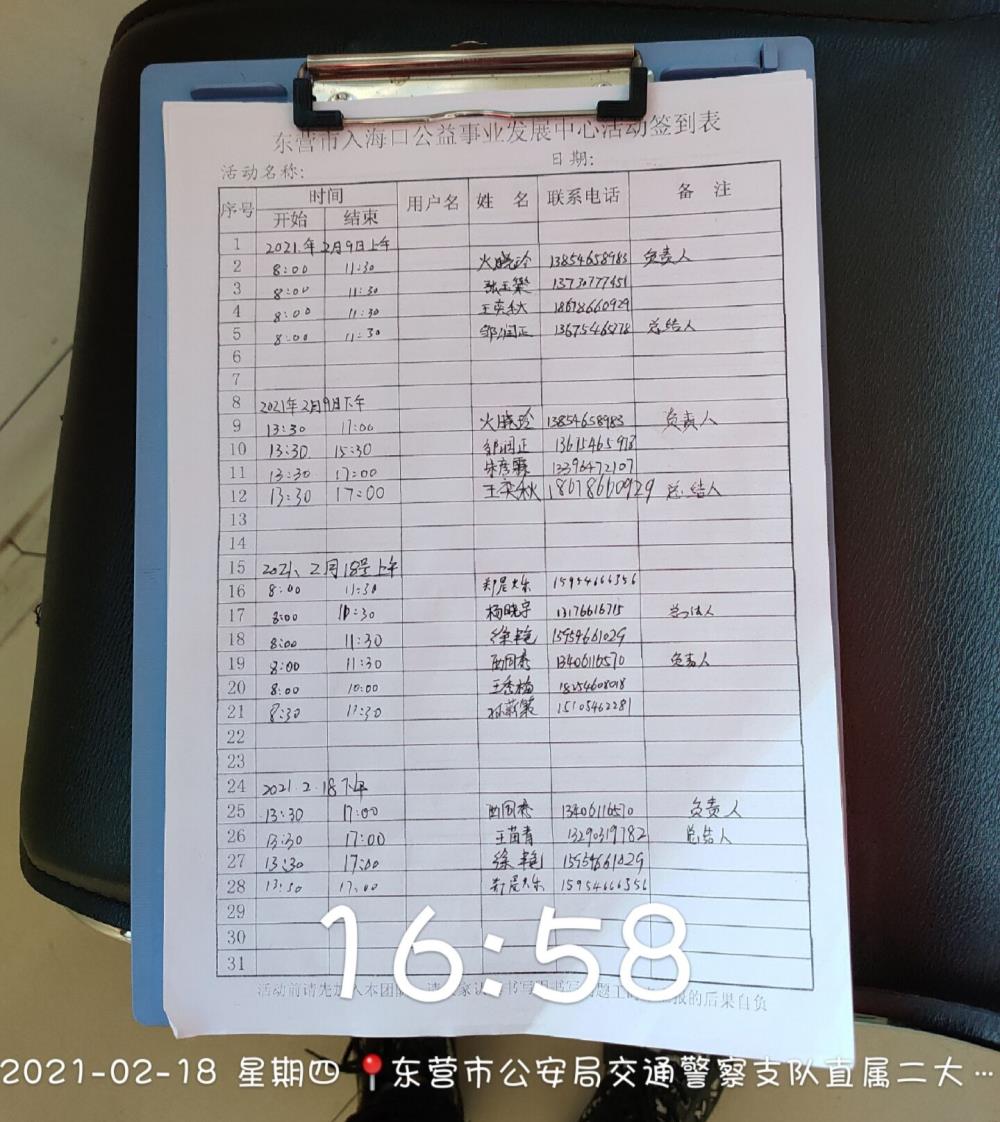 东营市入海口公益事业发展中心活动签到表
活动名称: 日期:
序号 时间 用户名 姓 名 联系电话 备 注
开始 结束
1 2021.年2月9日上午
2 8:00 11:30 火晓玲 13854658983 负责人
3 8:00 11:30 张玉 13730777451
4 8:00 11:30 王奕秋 18678660929
5 8:00 11:30 邹润正 总结人
6
7
8 2021年2月9日下午
9 13:30 17:00 火晓玲 13854658983 负责人
10 13:30 15:30 邹润正
11 13:30 17:00 朱彦霖 13396472107
12 13:30 17:00 王奕秋 18678660929 总结人
13
14
15 2021、2月18号上午
16 8:00 11:30 15954666356
17 8:00 10:30 杨晓宇 13176616715
18 8:00 11:30 徐艳 15959661029
19 8:00 11:30 13406116570 负责人
20 8:00 10:00 王秀梅 18254608018
21 8:30 11:30 15105462281
22
23
24 2021.2.18下午
25 13:30 17:00 13406116570 负责人
26 13:30 17:00 王苗青 13290319782 总结人
27 13:30 17:00 徐艳 15959661029
28 13:30 17:00 15954666356
29
30
31
活动前请先加入本团 的后果自负
16:58
2021-02-18 星期四 东营市公安局交通警察支队直属二大…